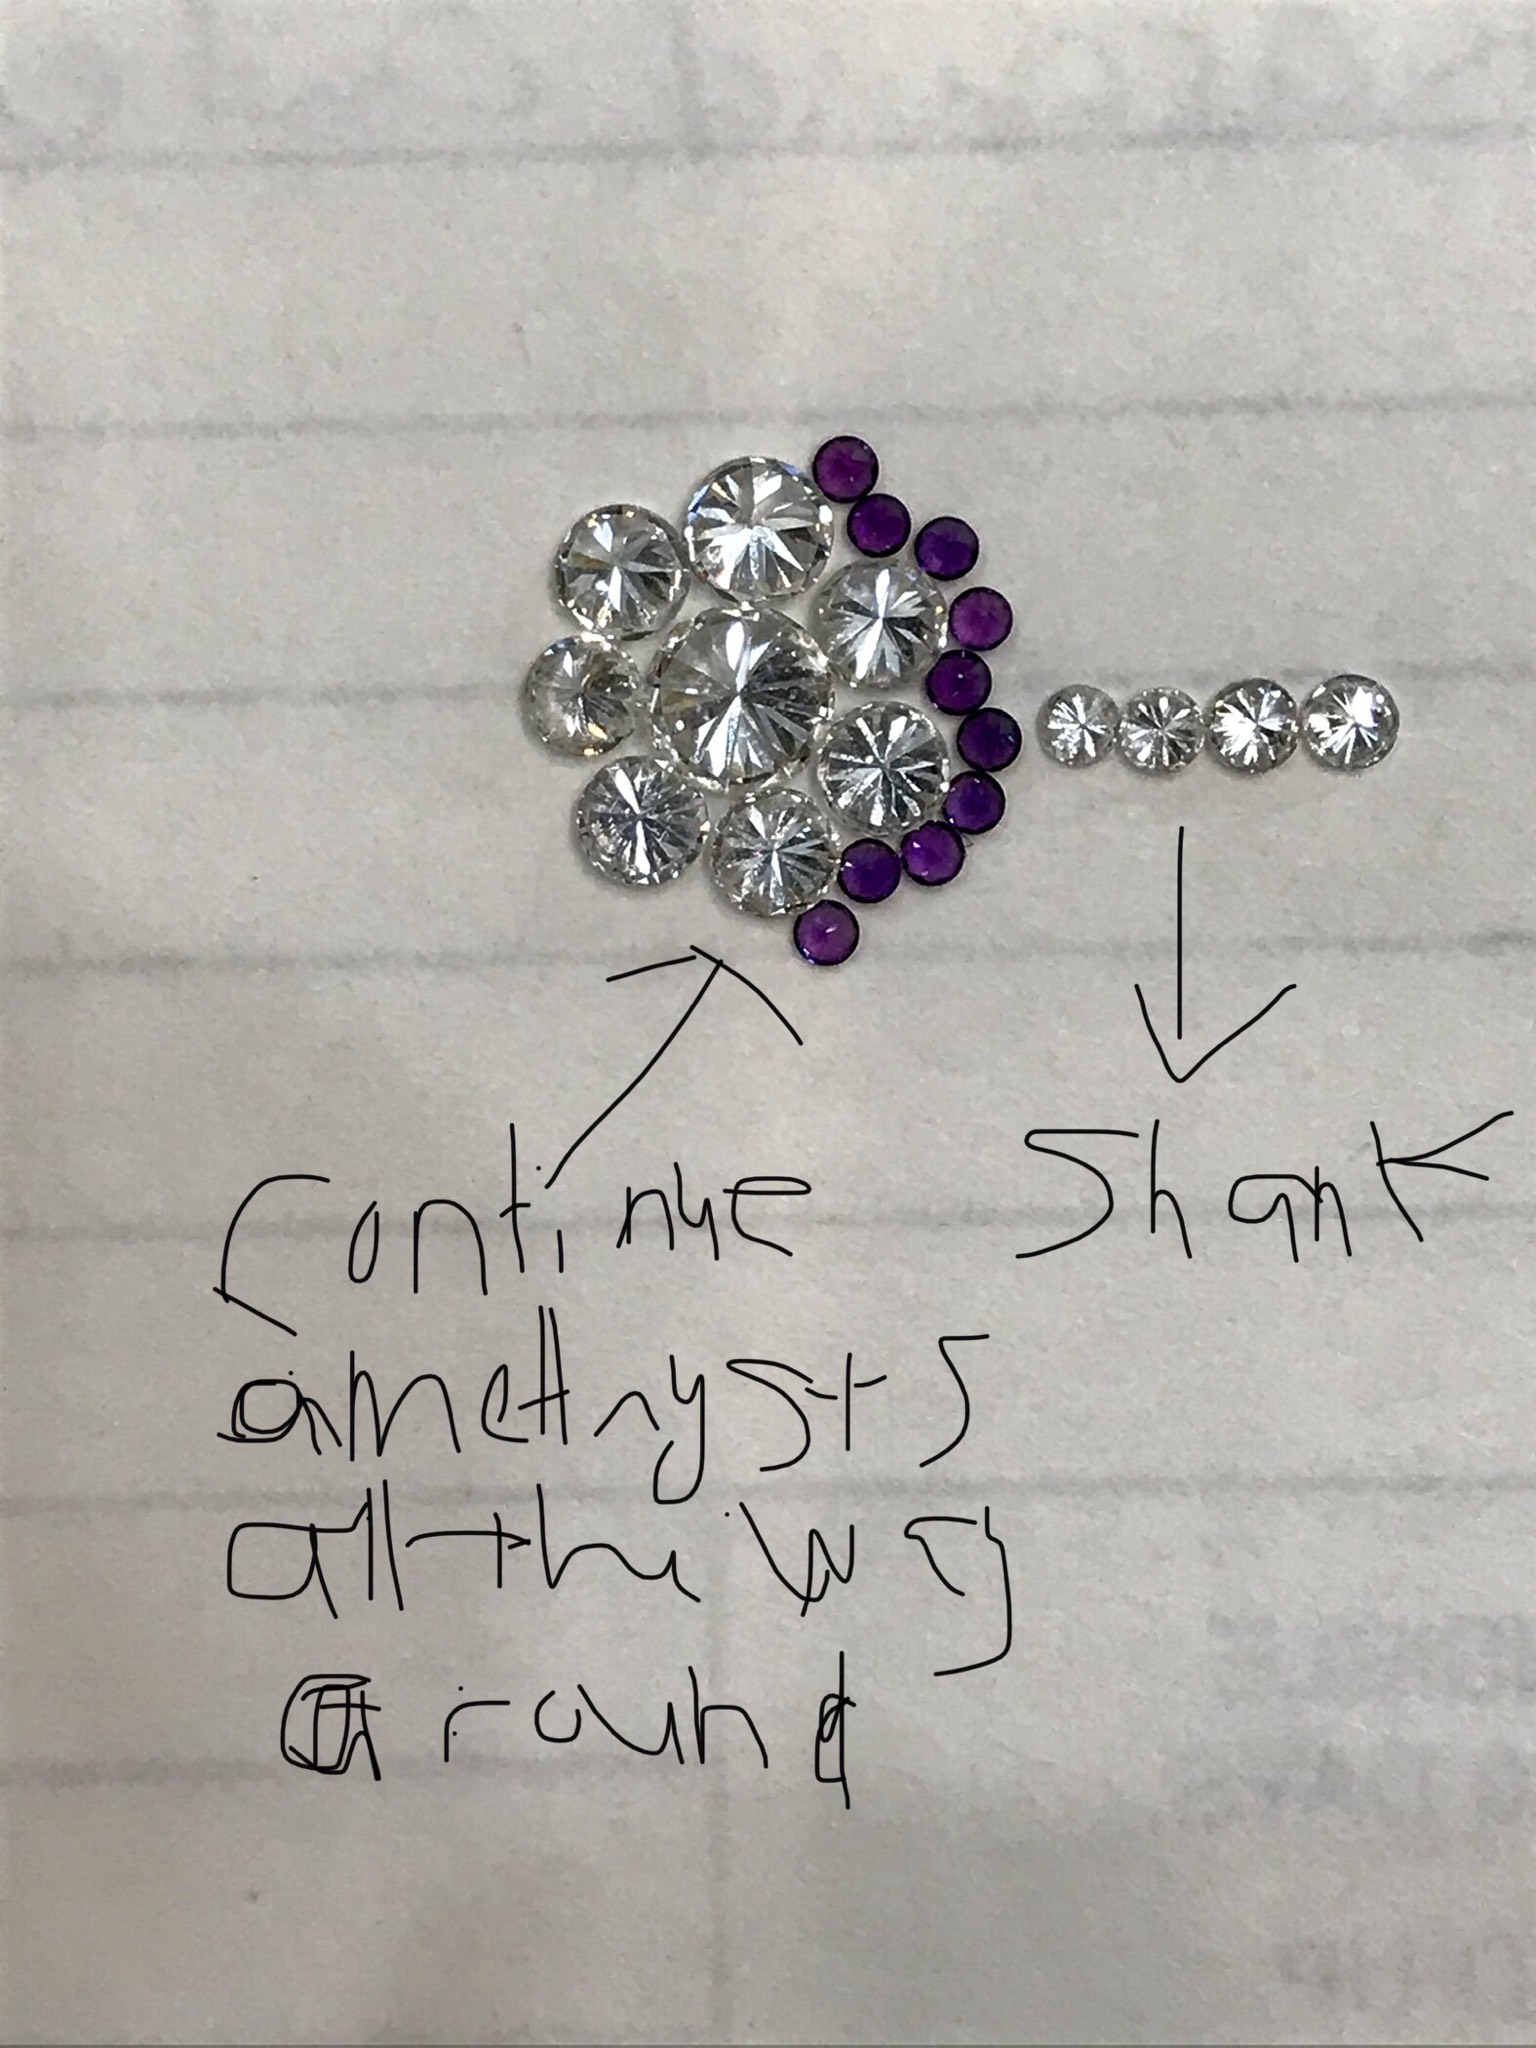 Continue
amethysts
all the way
around
Shank